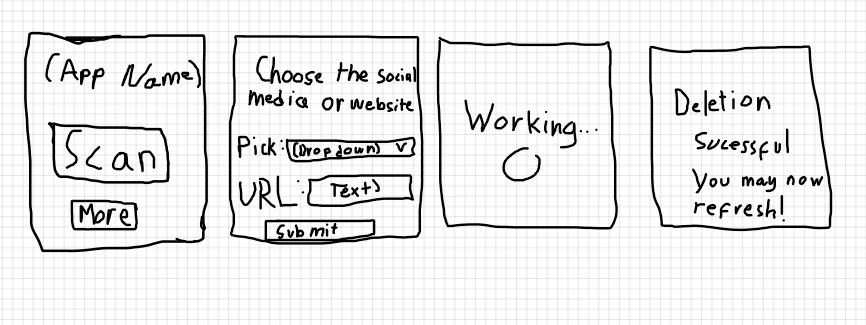 (App Name)
Scan
More
Choose the social
media or website
Pick: (Dropdown) V
URL: Text)
Submit
Working...
Deletion
Sucessful
You may now
refresh!